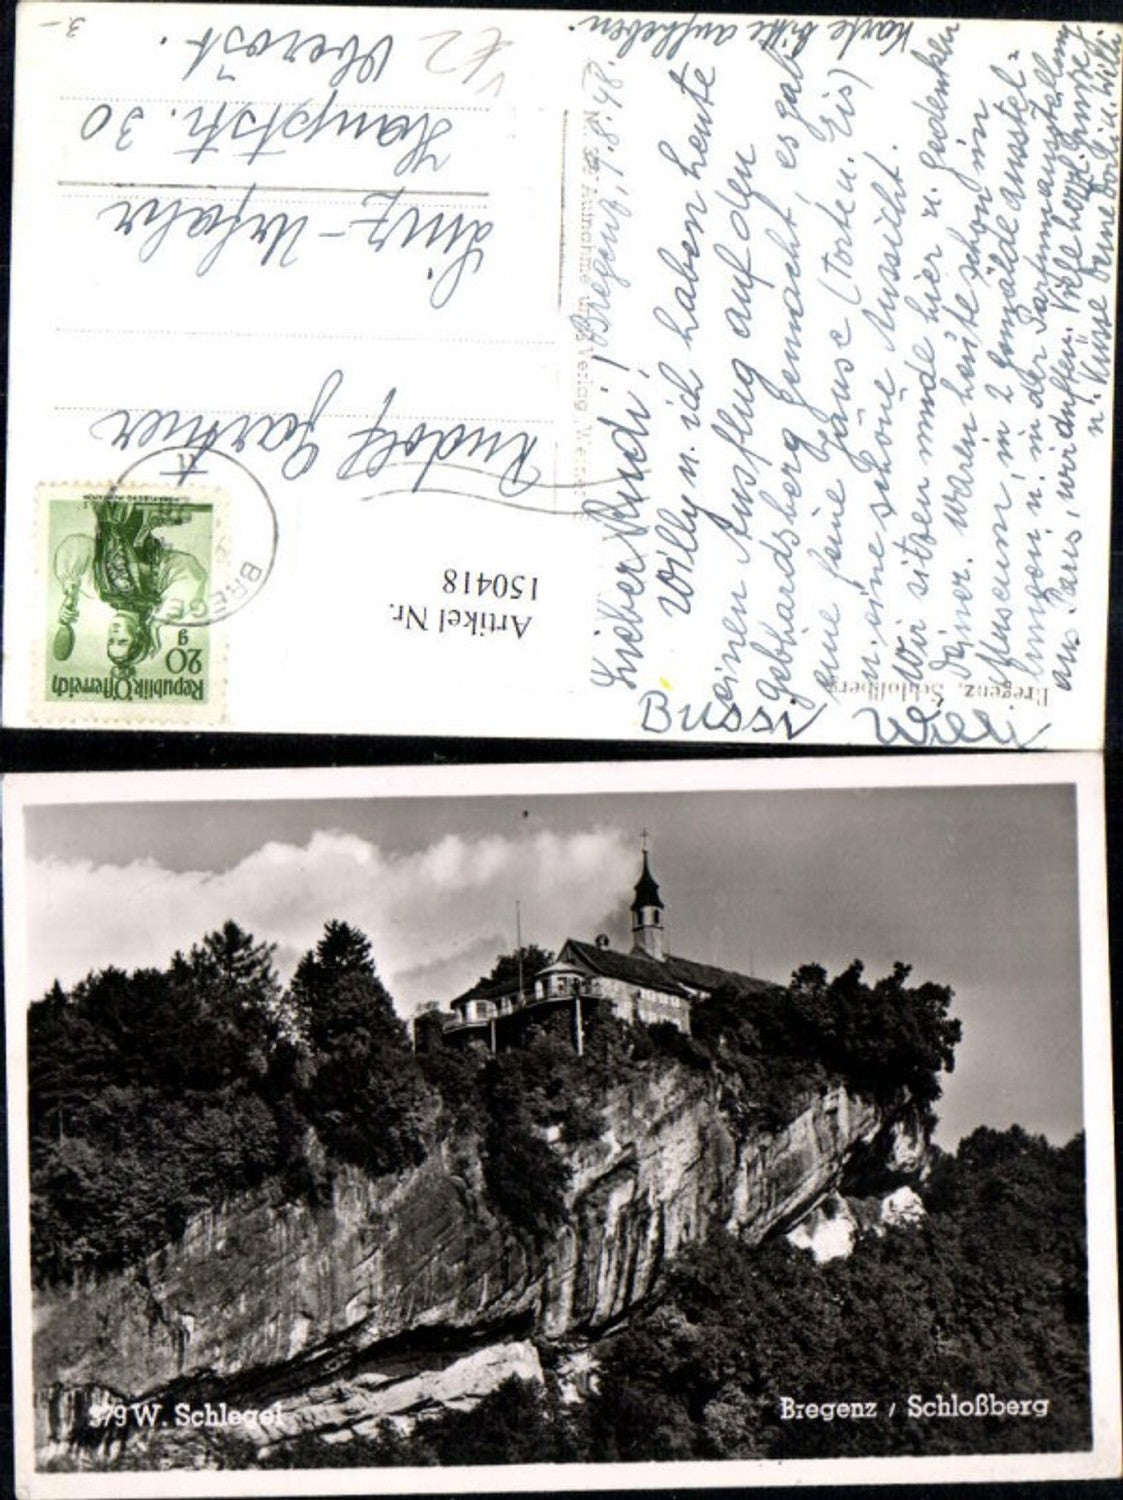 Karte bitte aufheben.
Bregenz, 9.8.48.
Lieber Rudi!
Willy u. ich haben heute
einen Ausflug auf den
Gebhardsberg gemacht es gab
eine feine Jause (Torte u. Eis)
u. eine schöne Aussicht.
Wir sitzen müde hier u. gedenken
Deiner. Waren heute schon im
Museum, in 2 Gemäldeausstel=
lungen u. in der Parfumausstellung
aus Paris, wir duften. Viele herzl. Grüsse
u. Küsse Deine
Bussi Willi
Bregenz, Schloßberg
Aufnahme u. Verlag
Artikel Nr.
150418
Republik Österreich
20
g
BREGE
Rudolf Gärtner
Linz-Urfahr
Hauptstr. 30
Oberöst.
3.-
379 W. Schlegel
Bregenz / Schloßberg